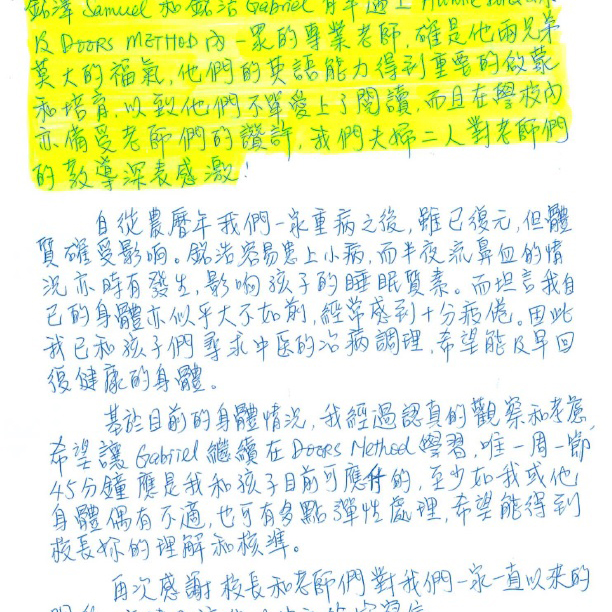 銘澤 Samuel 和 銘浩 Gabriel 有幸遇上
及 DOORS METHOD 內一眾的專業老師，確是他兩兄弟
莫大的福氣，他們的英語能力得到重要的啟蒙
和培育，以致他們不單愛上了閱讀，而且在學校內
亦備受老師們的讚許，我們夫婦二人對老師們
的教導深表感激！
自從農曆年我們一家重病之後，雖已復元，但體
質確受影响。銘浩容易患上小病，而半夜流鼻血的情
況亦時有發生，影响孩子的睡眠質素。而坦言我自
己的身體亦似乎大不如前，經常感到十分疲倦。因此
我已和孩子們尋求中医的治病調理，希望能及早回
復健康的身體。
基於目前的身體情況，我經過認真的觀察和考慮，
希望讓 Gabriel 繼續在 Doors Method 學習，唯一周一節
45分鐘應是我和孩子目前可應付的，至少如我或他
身體偶有不適，也可有多點彈性處理，希望能得到
校長妳的理解和核準。
再次感謝校長和老師們對我們一家一直以來的